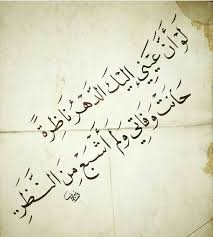 لَوْ أَنَّ عَيْنِي إِلَيْكَ الدَّهْرَ نَاظِرَةٌ
حَانَتْ وَفَاتِي وَلَمْ أَشْبَعْ مِنَ النَّظَرِ